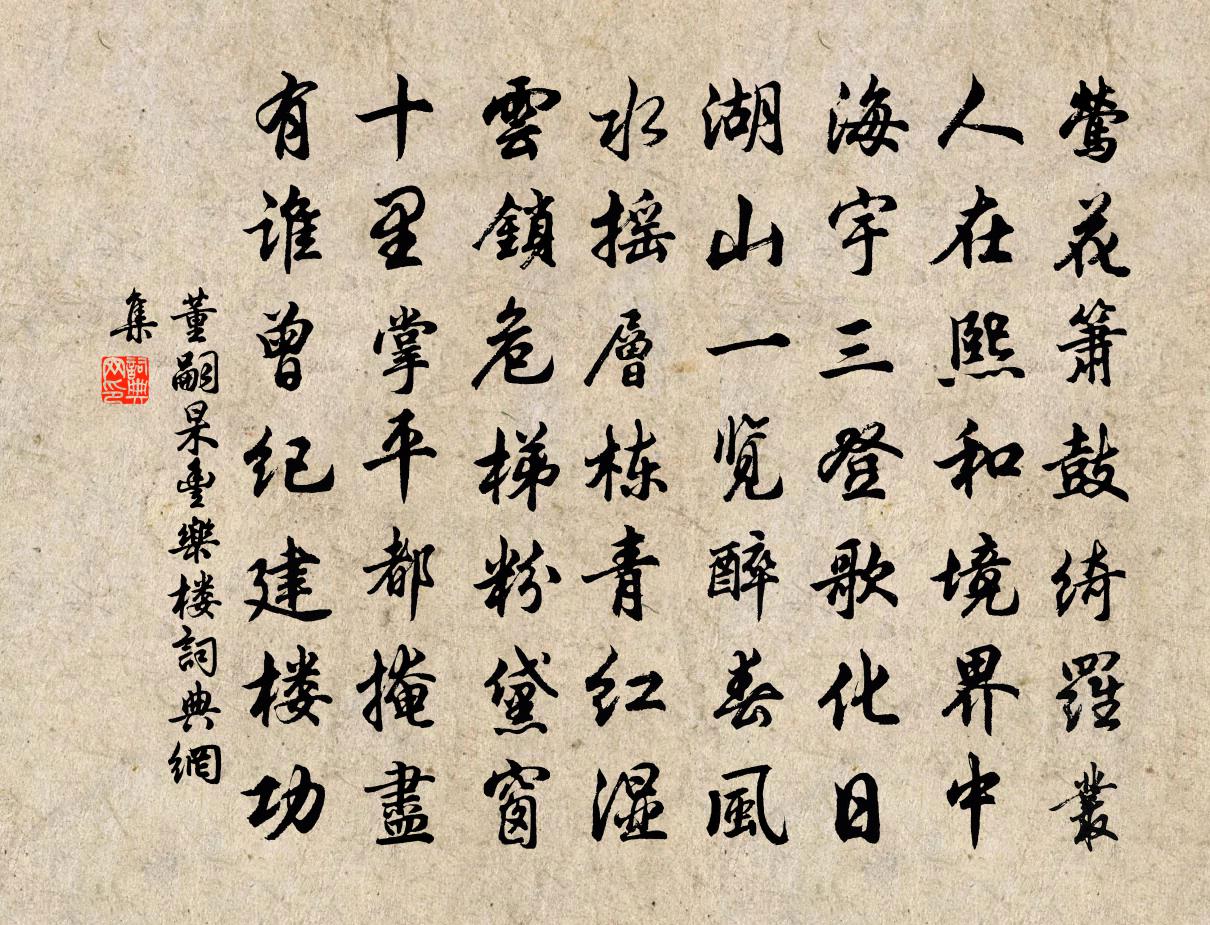 莺花箫鼓绮羅叢
人在熙和境界中
海宇三登歌化日
湖山一览醉春風
水摇層栋青红湿
雲鎖危梯粉黛窗
十里掌平都掩盡
有谁曾纪建楼功
董嗣杲豊樂楼詞典網
集
詞典
网印